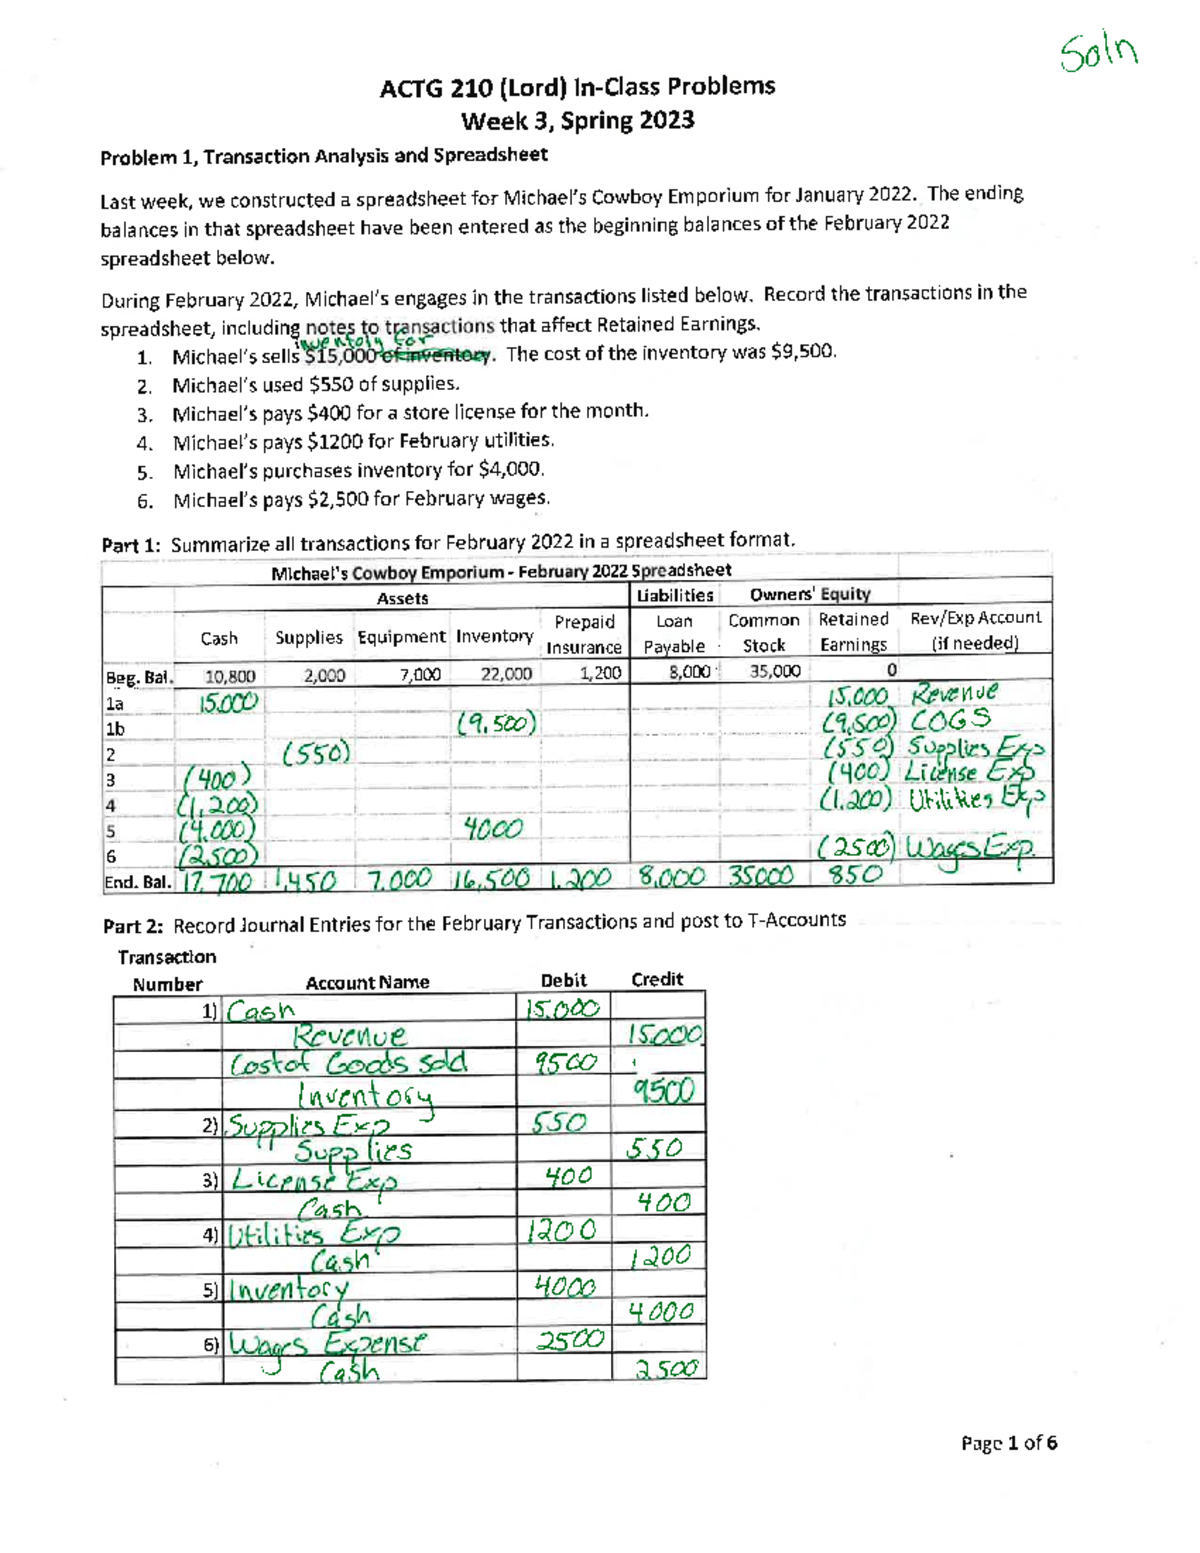 Soln
ACTG 210 (Lord) In-Class Problems
Week 3, Spring 2023
Problem 1, Transaction Analysis and Spreadsheet
Last week, we constructed a spreadsheet for Michael's Cowboy Emporium for January 2022. The ending
balances in that spreadsheet have been entered as the beginning balances of the February 2022
spreadsheet below.
During February 2022, Michael's engages in the transactions listed below. Record the transactions in the
spreadsheet, including notes to transactions that affect Retained Earnings.
inventory for
1. Michael's sells $15,000 of inventory. The cost of the inventory was $9,500.
2. Michael's used $550 of supplies.
3. Michael's pays $400 for a store license for the month.
4. Michael's pays $1200 for February utilities.
5. Michael's purchases inventory for $4,000.
6. Michael's pays $2,500 for February wages.
Part 1: Summarize all transactions for February 2022 in a spreadsheet format.
Michael's Cowboy Emporium - February 2022 Spreadsheet
Assets Liabilities Owners' Equity
Cash Supplies Equipment Inventory Prepaid Insurance Loan Payable Common Stock Retained Earnings Rev/Exp Account (if needed)
Beg. Bal. 10,800 2,000 7,000 22,000 1,200 8,000 35,000 0
1a 15.000 15,000 Revenue
1b (9,500) (9,500) COGS
2 (550) (550) Supplies Exp
3 (400) (400) License Exp
4 (1,200) (1,200) Utilities Exp
5 (4,000) 4000
6 (2,500) (2500) Wages Exp.
End. Bal. 17,700 1,450 7,000 16,500 1,200 8,000 35000 850
Part 2: Record Journal Entries for the February Transactions and post to T-Accounts
Transaction
Number Account Name Debit Credit
1) Cash 15,000
Revenue 15000
Cost of Goods Sold 9500
Inventory 9500
2) Supplies Exp 550
Supplies 550
3) License Exp 400
Cash 400
4) Utilities Exp 1200
Cash 1200
5) Inventory 4000
Cash 4000
6) Wages Expense 2500
Cash 2500
Page 1 of 6